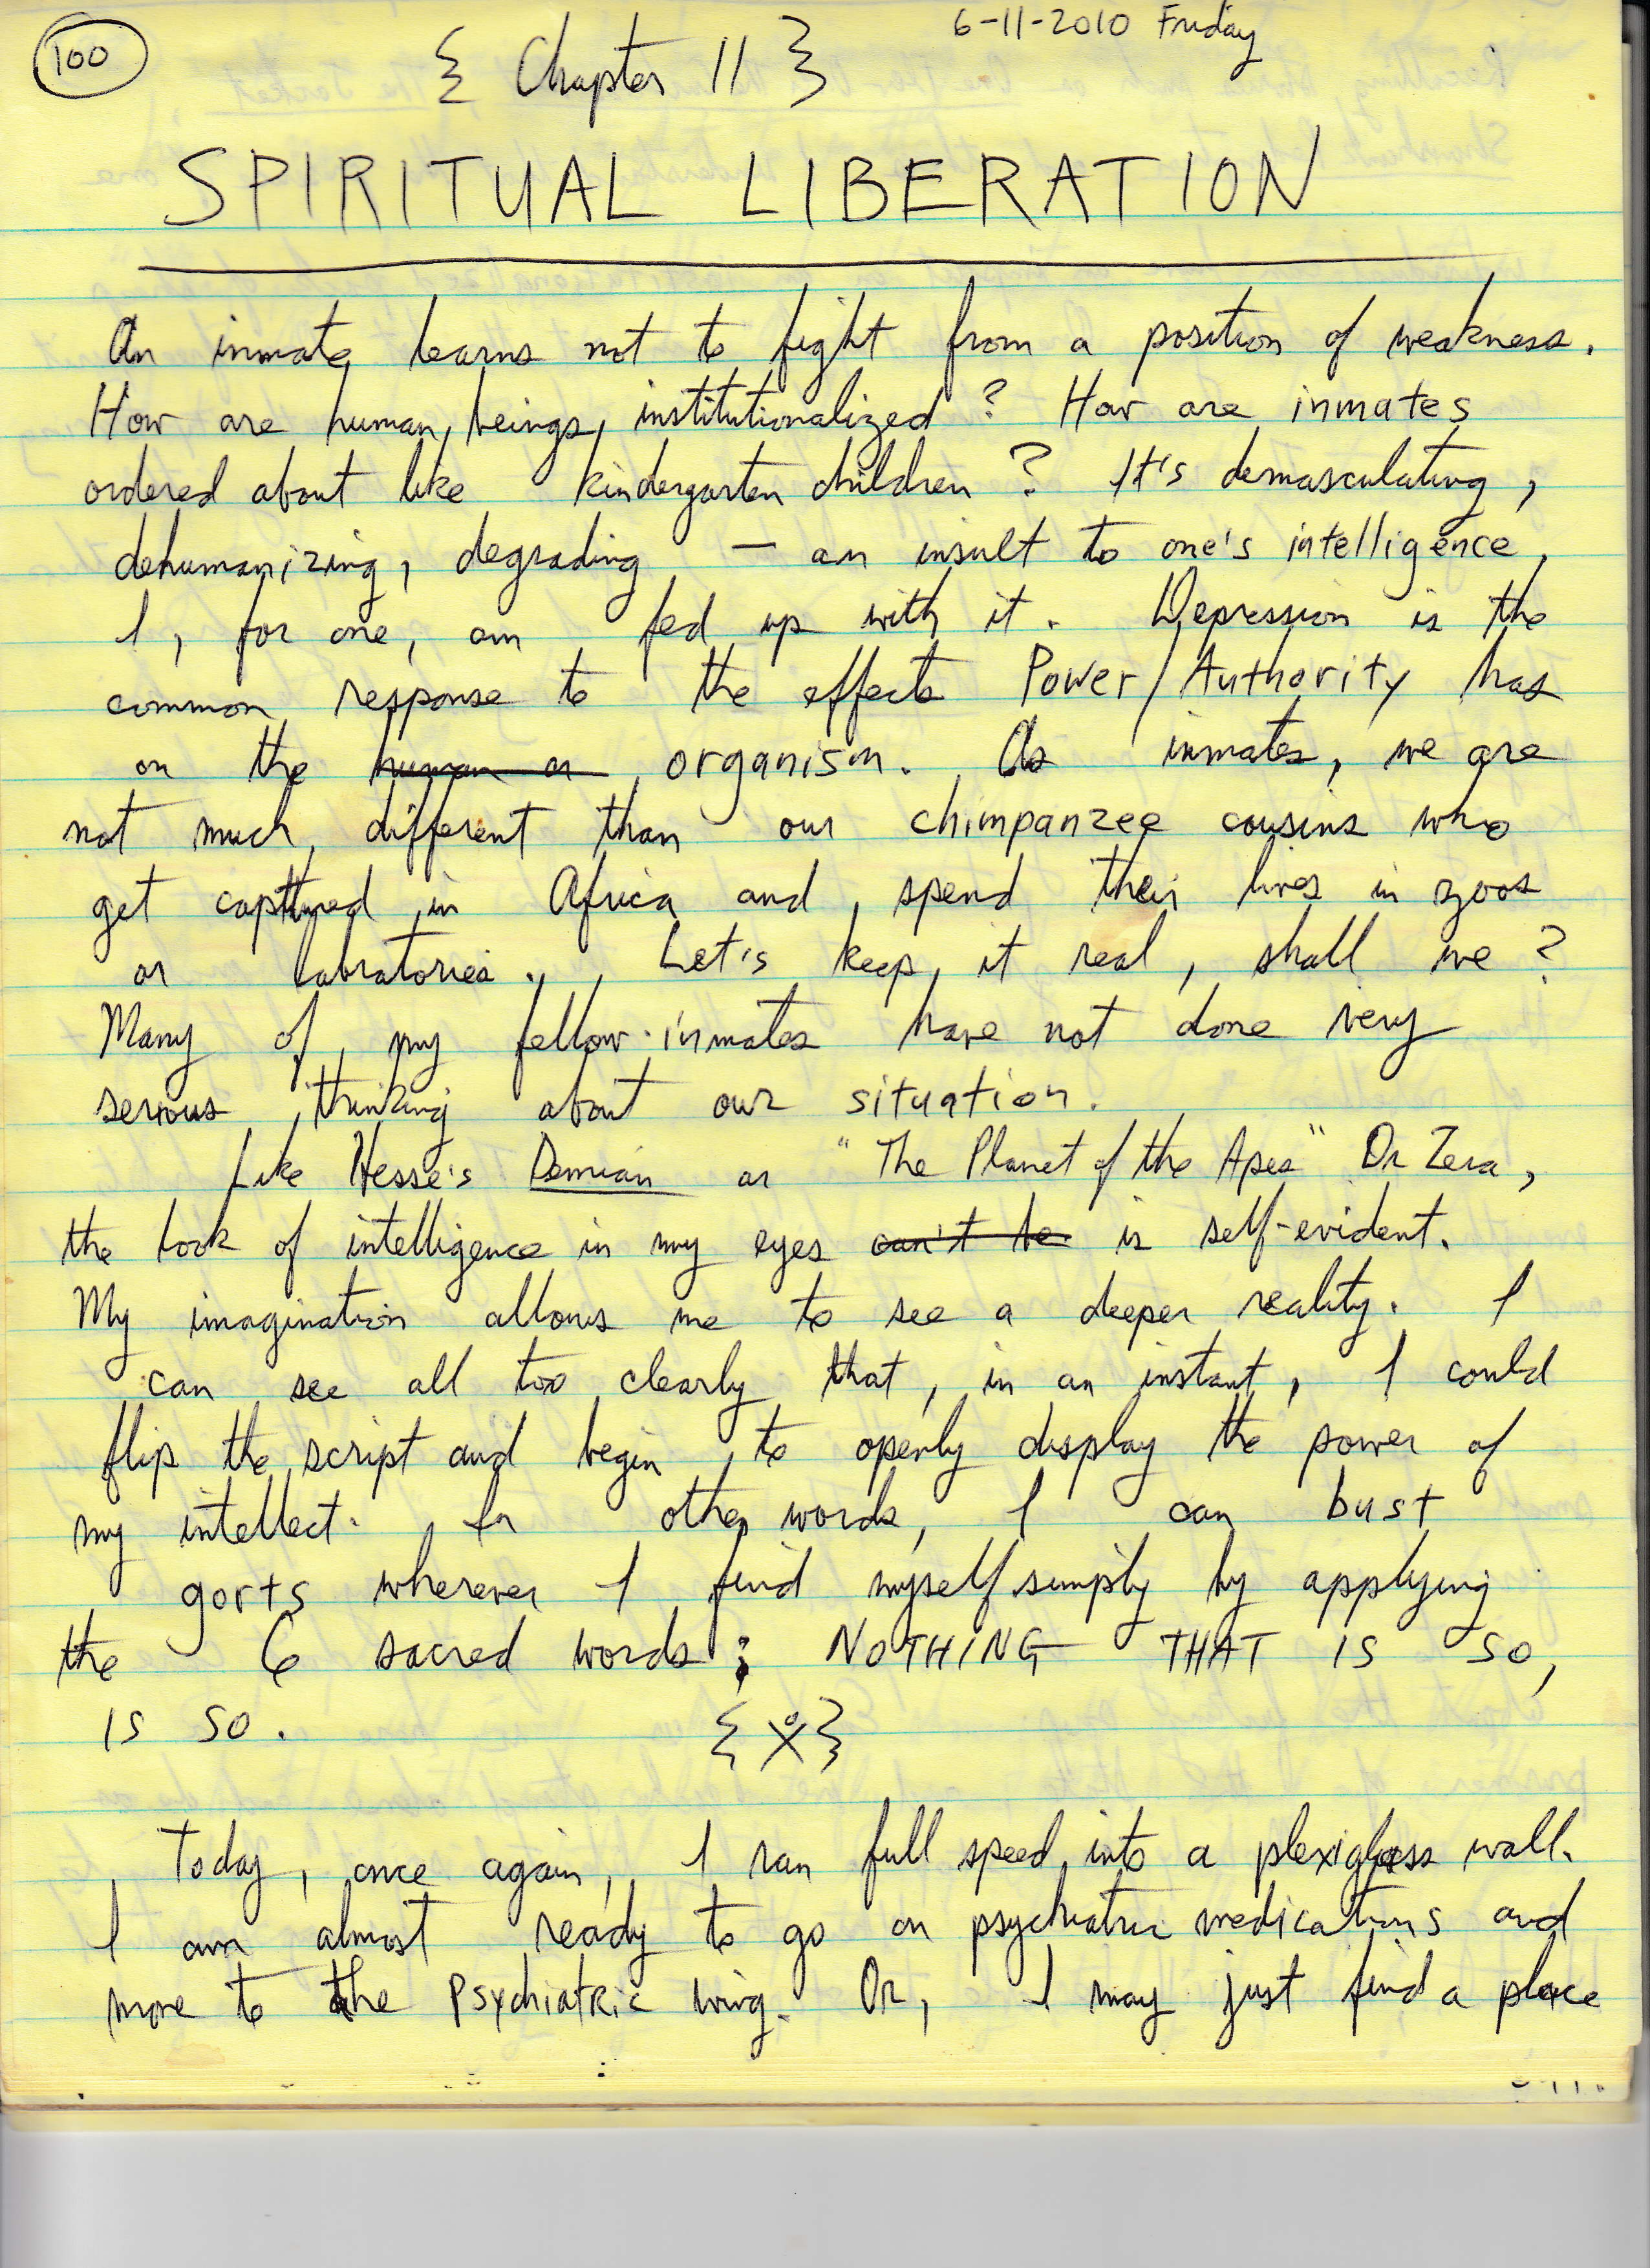 100
6-11-2010 Friday
{ Chapter 11 }
SPIRITUAL LIBERATION
An inmate learns not to fight from a position of weakness.
How are human beings institutionalized? How are inmates
ordered about like kindergarten children? It's demasculating,
dehumanizing, degrading — an insult to one's intelligence,
I, for one, am fed up with it. Depression is the
common response to the effects Power/Authority has
on the human or organism. As inmates, we are
not much different than our chimpanzee cousins who
get capttured in Africa and spend their lives in zoos
or labratories. Let's keep it real, shall we?
Many of my fellow-inmates have not done very
serious thinking about our situation.
Like Hesse's Demian or "The Planet of the Apes" Dr Zera,
the look of intelligence in my eyes can't be is self-evident.
My imagination allows me to see a deeper reality. I
can see all too clearly that, in an instant, I could
flip the script and begin to openly display the power of
my intellect. In other words, I can bust
gorts wherever I find myself simply by applying
the 6 sacred words: NOTHING THAT IS SO,
IS SO. { X }
Today, once again, I ran full speed into a plexiglass wall.
I am almost ready to go on psychiatric medications and
move to the Psychiatric wing. Or, I may just find a place